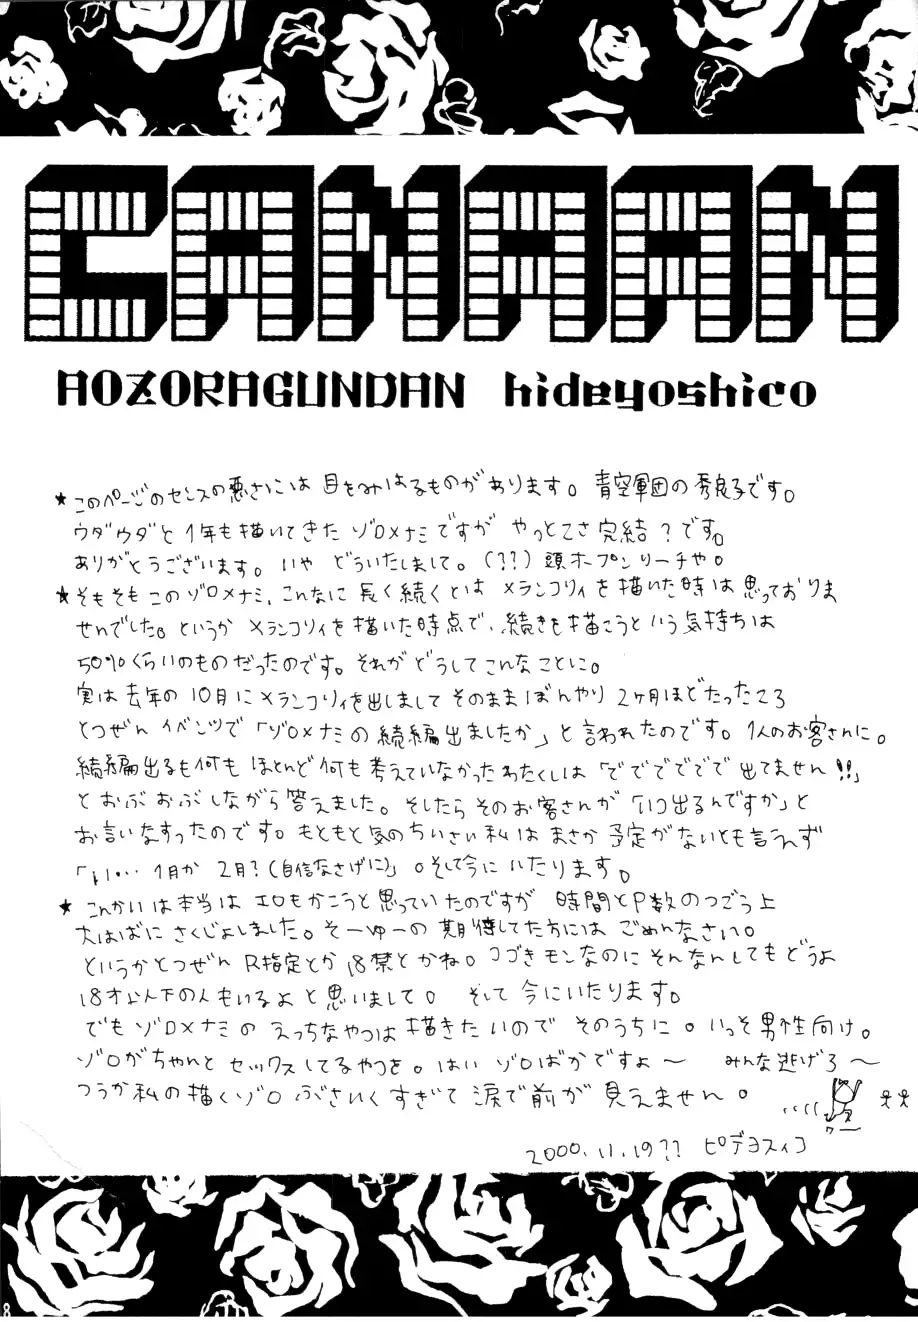 CANAAN
AOZORAGUNDAN hideyoshico
★このページのセンスの悪さには目をみはるものがあります。青空軍団の秀良子です。
ウダウダと1年も描いてきたゾロ×ナミですが やっとこさ完結?です。
ありがとうございます。いや どういたしまして。(??)頭ホープンリーチや。
★そもそもこのゾロ×ナミ、こんなに長く続くとはメランコリィを描いた時は思っておりま
せんでした。というかメランコリィを描いた時点で、続きを描こうという気持ちは
50%くらいのものだったのです。それがどうしてこんなことに。
実は去年の10月にメランコリィを出しましてそのままぼんやり2ヶ月ほどたったころ
とつぜんイベンツで「ゾロ×ナミの続編出ましたか」と言われたのです。1人のお客さんに。
続編出るも何もほとんど何も考えていなかったわたくしは「でででででで出てません!!」
とおぶおぶしながら答えました。そしたらそのお客さんが「いつ出るんですか」と
お言いなすったのです。もともと気のちいさい私はまさか予定がないとも言えず
「い…1月か2月?(自信なさげに)」。そして今にいたります。
★こんかいは本当はエロもかこうと思っていたのですが 時間とP数のつごう上
大はばにさくじょしました。そーゆーの期待してた方にはごめんなさい。
というかとつぜんR指定とか18禁とかね。つづきモンなのにそんなんしてもどうよ
18才以下の人もいるよと思いまして。 そして今にいたります。
でもゾロ×ナミのえっちなやつは描きたいのでそのうちに。いっそ男性向け。
ゾロがちゃんとセックスしてるやつを。はいゾロばかですよ〜 みんな逃げろ〜
つうか私の描くゾロぶさいくすぎて涙で前が見えません。
2000.11.19?? ピデヨスィコ
8